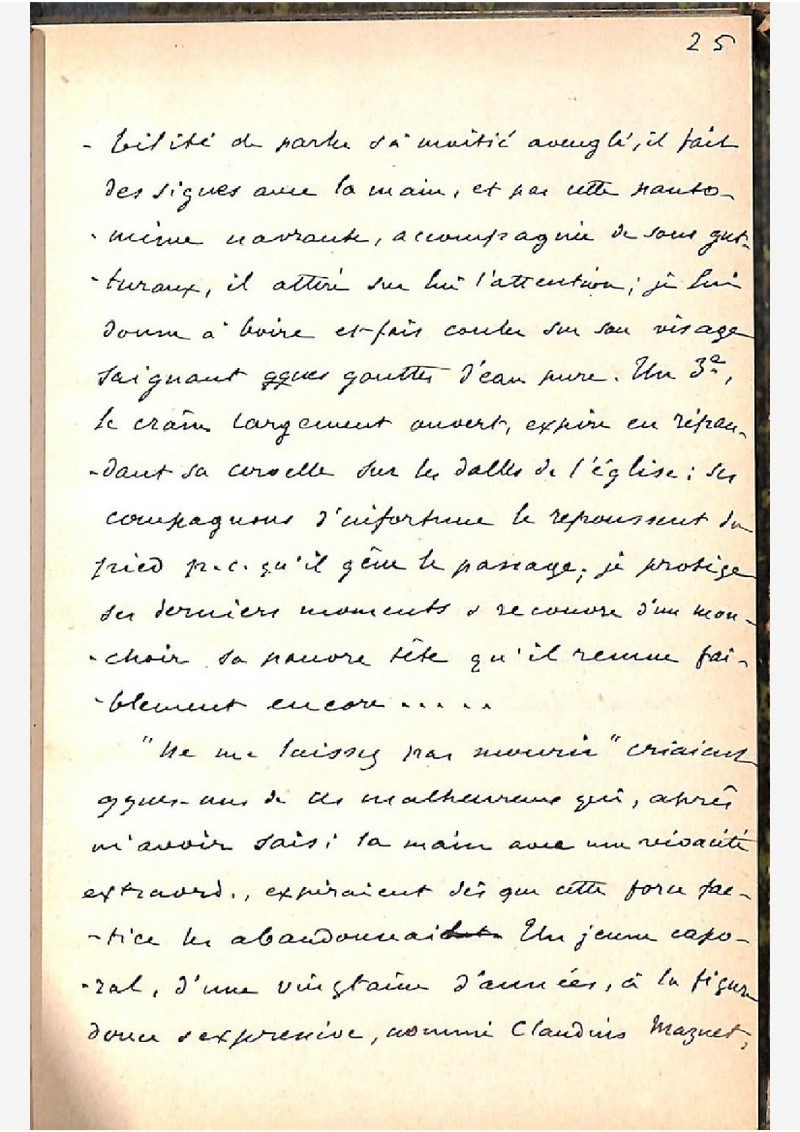 25
- bilité de parler & à moitié aveuglé, il fait
des signes avec la main, et par cette panto-
- mime navrante, accompagnée de sons gut-
- turaux, il attire sur lui l'attention ; je lui
donne à boire et fais couler sur son visage
saignant qques gouttes d'eau pure. Un 3e,
le crâne largement ouvert, expire en répan-
- dant sa cervelle sur les dalles de l'église : ses
compagnons d'infortune le repoussent du
pied p.c. qu'il gêne le passage ; je protège
ses derniers moments & recouvre d'un mou-
- choir sa pauvre tête qu'il remue fai-
- blement encore . . . . .
"Ne me laissez pas mourir" criaient
qques-uns de ces malheureux qui, après
m'avoir saisi la main avec une vivacité
extraord., expiraient dès que cette force fac-
- tice les abandonnait. Un jeune capo-
- ral, d'une vingtaine d'années, à la figure
douce & expressive, nommé Claudius Mazuet,